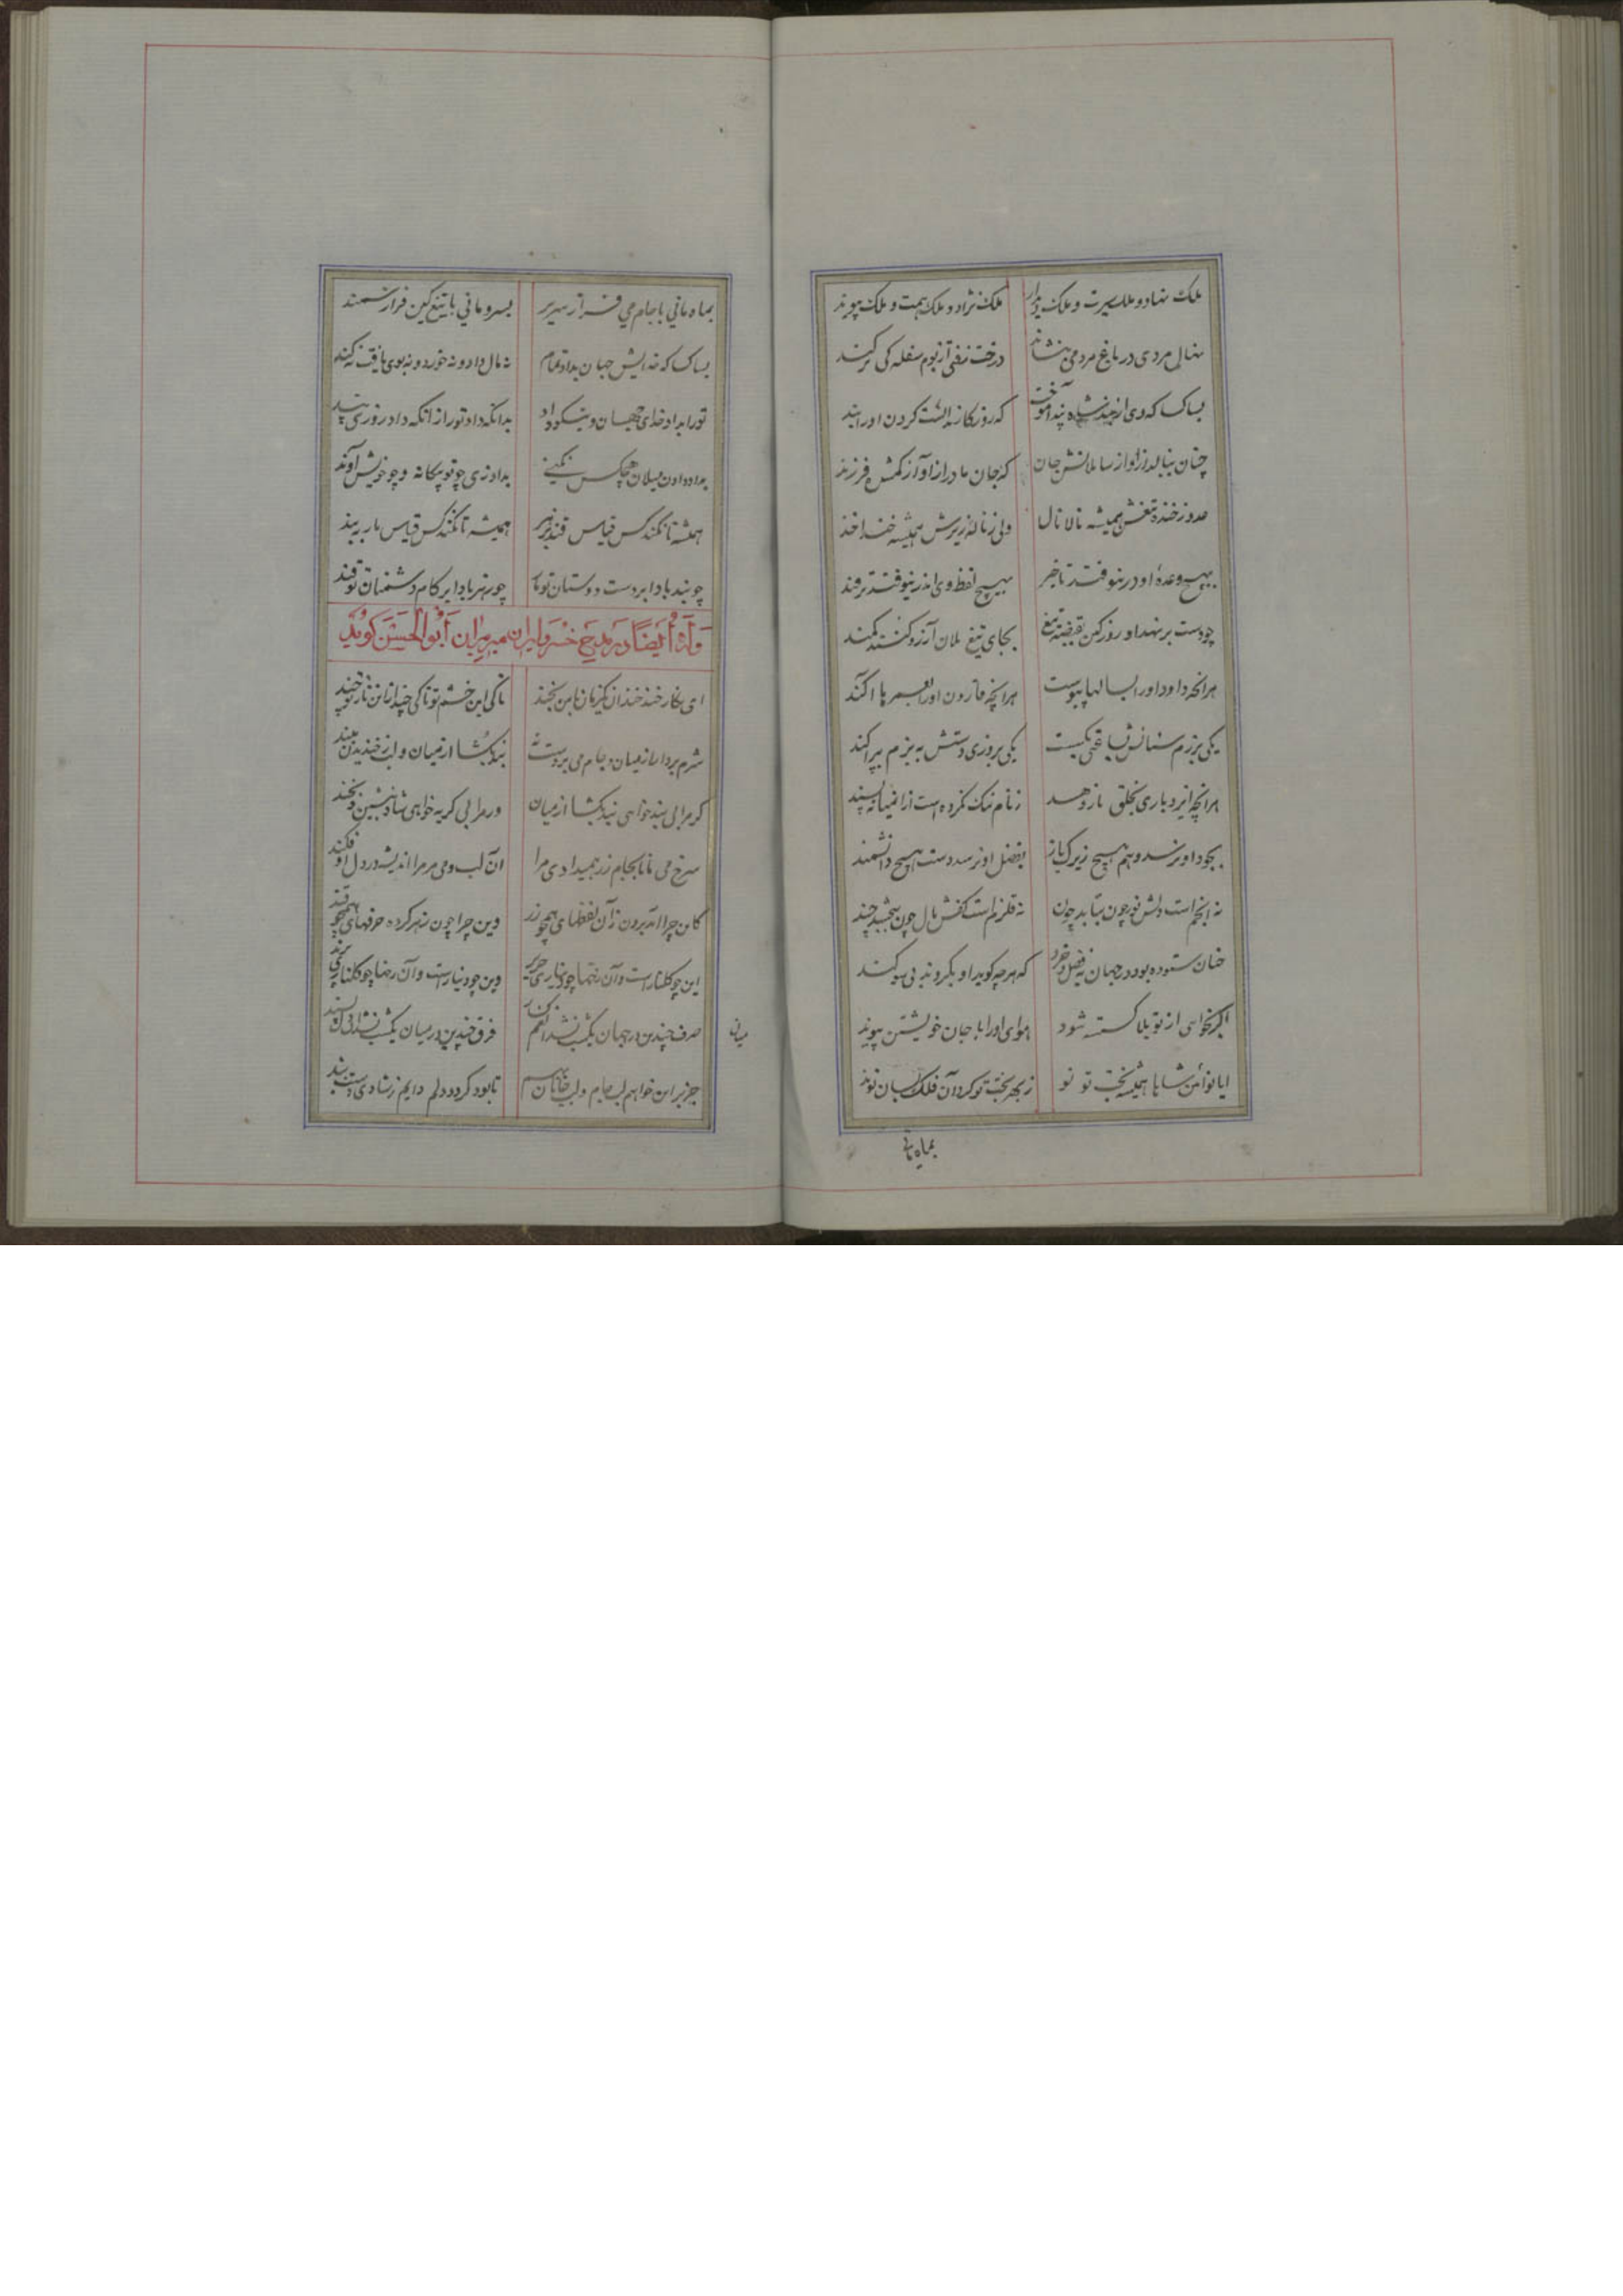 ملک نهاد و ملک سیرت و ملک دیدار ملک نژاد و ملک همت و ملک پیوند
نهال مردی در باغ مردمی بنشاند درخت زفتی از بوم سفله کی برکند
بسا کسا که وی از بند شاه پند آموخت که روزگار ندانست کردن او را پند
چنان بنالد از آواز سایلانش جان که جان مادر از آواز گمشده فرزند
عدو ز خنده تیغش همیشه نالا نال ولی ز ناله زیرش همیشه خنداخند
بهیچ وعده او در نیوفتد تاخیر بهیچ لفظ وی اندر نیوفتد ترفند
چو دست برنهد او روز کین بقبضه تیغ بجای تیغ یلان آرزو کنند کمند
هر آنچه داود او را بسالها پیوست هر آنچه قارون او را بعمرها آکند
یکی برزم سنانش بساعتی بکست یکی بروزی دستش به بزم بپراکند
هر آنچه ایزد باری بخلق باز دهد ز نام نیک نکرده است از آنهمانه پسند
بجود او نرسد وهم هیچ زیرک باز بفضل او نرسد دست هیچ دانشمند
نه انجم است دلش نور چون بتابد چون نه قلزم است کفش مال چون ببخشد چند
چنان ستوده بود در جهان به فضل و خرد که هر چه گوید او بگروند بی سوگند
اگر نخواهی از تو بلا گسسته شود هوای او را با جان خویشتن پیوند
ایا نو آئین شاها همیشه بخت تو نو ز بهر بخت تو گردان فلک بسان نوند
بماه مانی
بماه مانی با جام می فراز سریر بسرو مانی با تیغ کین فراز سمند
بسا کسا که خدایش جهان بداد تمام نه مال داد و نه خورد و نه بوی یافت نه کند
تو را بداد خدای جهان و نیکو داد بدانکه داد تو را زانکه داد روزی بند
بداده دادن میلان هیچکس نکنی بداد زی چو تو بیگانه و چو خویشاوند
همیشه تا نکند کس قیاس قند بزهر همیشه تا نکند کس قیاس مار ببند
چو نبد بادا بر دست دوستان تو مار چو زهر بادا بر کام دشمنان تو قند
وله أیضاً در مدح خسرو ایران میر میران أبوالحسن گوید
ای نگار خند خندان یکزمان با من بخند تا کی این خشم تو تا کی چند ازین ناز تو چند
شرم بردار از میان و جام می بر دست نه بند بگشا از میان و لب ز خندیدن مبند
گر مرا بی بند خواهی بند بگشا از میان ور مرا بی گریه خواهی شاد بنشین و بخند
سرخ می مانا بجام زر همیدادی مرا آن لب و می مر مرا اندیشه در دل اوفکند
کاین چرا آمد برون زآن لفظهای همچو زر وین چرا چون زهر کرده حرفهای همچو قند
این چو گلنار است و آن رخها چو دیناری حریر وین چو دینار است و آن رخها چو گلناری پرند
صرف چندین در جهان یکشب نشد اندر کنار فرق چندین در میان یکشب نشد این را پسند
میانی
جز بر این خواهم لب جام و لب جانان بهم تا بود گردد دلم دایم ز شادی مستمند